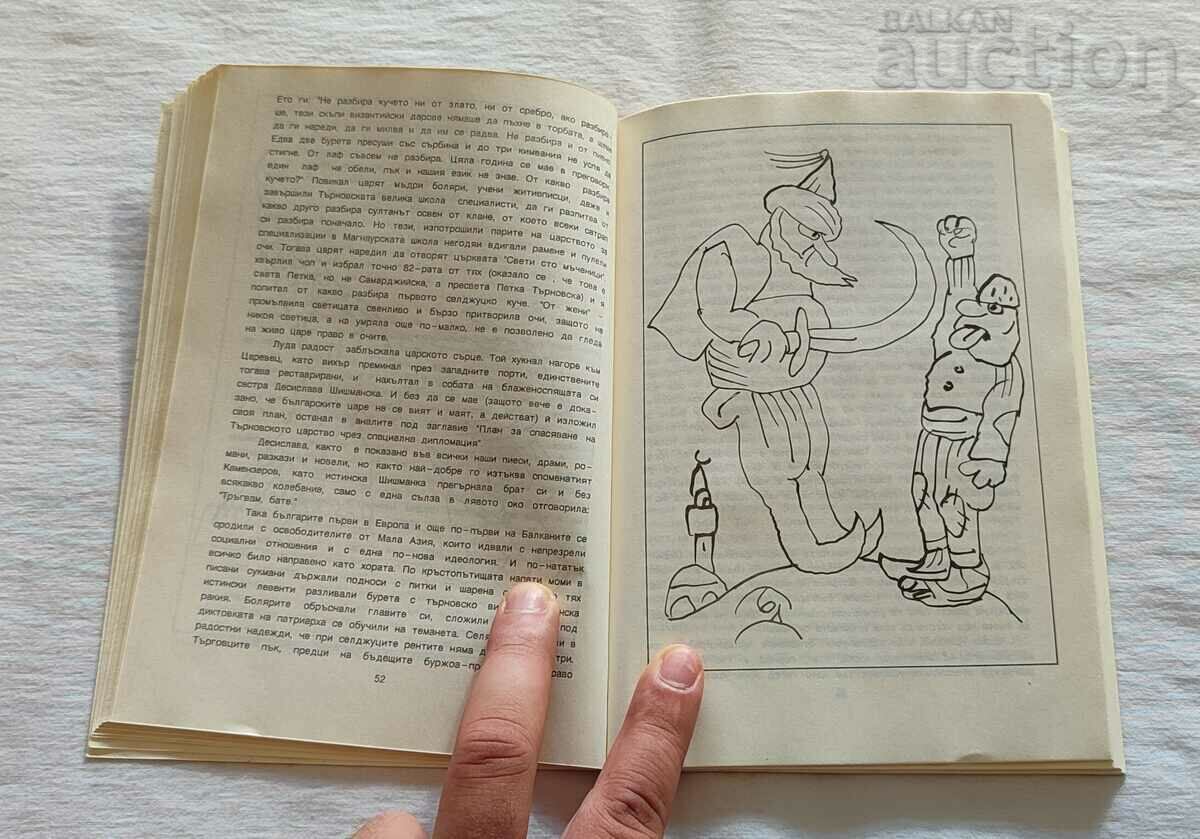 BALKAN
auction
Ето ги: "Не разбира кучето ни от злато, ни от сребро, ако разбира-
ше, тези скъпи византийски дарове нямаше да пъхне в торбата, а щеше
да ги нареди, да ги милва и да им се радва. Не разбира и от пиене.
Едва две бурета пресуши със сърбина и до три кимвания не успя да
стигне. От лаф съвсем не разбира. Цяла година се мае в преговори,
един лаф не обели, пък и нашия език не знае. От какво разбира
кучето?" Повикал царят мъдри боляри, учени житиеписци, даже и
завършили Търновската велика школа специалисти, да ги разпитва от
какво друго разбира султанът освен от клане, от което всеки сатрап
си разбира поначало. Но тези, изпотрошили парите на царството за
специализации в Магнаурската школа негодяи вдигали рамене и пулели
очи. Тогава царят наредил да отворят църквата "Свети сто мъченици",
хвърлил чоп и избрал точно 82-рата от тях (оказало се , че това е
света Петка, но не Самарджийска, а пресвета Петка Търновска) и я
попитал от какво разбира първото селджуцко куче. "От жени" –
промълвила светицата свенливо и бързо притворила очи, защото на
никоя светица, а на умряла още по-малко, не е позволено да гледа
на живо царе право в очите.
Луда радост заблъскала царското сърце. Той хукнал нагоре към
Царевец, като вихър преминал през западните порти, единствените
тогава реставрирани, и нахълтал в собата на блаженоспящата си
сестра Десислава Шишманска. И без да се мае (защото вече е дока-
зано, че българските царе не се вият и маят, а действат) й изложил
своя план, останал в аналите под заглавие "План за спасяване на
Търновското царство чрез специална дипломация".
Десислава, както е показано във всички наши пиеси, драми, ро-
мани, разкази и новели, но както най-добре го изтъква споменатият
Камензеров, като истинска Шишманка прегърнала брат си и без
всякакво колебание, само с една сълза в лявото око отговорила:
"Тръгвам, бате."
Така българите първи в Европа и още по-първи на Балканите се
сродили с освободителите от Мала Азия, които идвали с непрезрели
социални отношения и с една по-нова идеология. И по-нататък
всичко било направено като хората. По кръстопътищата напети моми в
писани сукмани държали подноси с питки и шарена тях
истински левенти разливали бурета с търновско
ракия. Болярите обръснали главите си, сложили под
диктовката на патриарха се обучили на теманета. в
радостни надежди, че при селджуците рентите няма
Търговците пък, предци на бъдещите
52